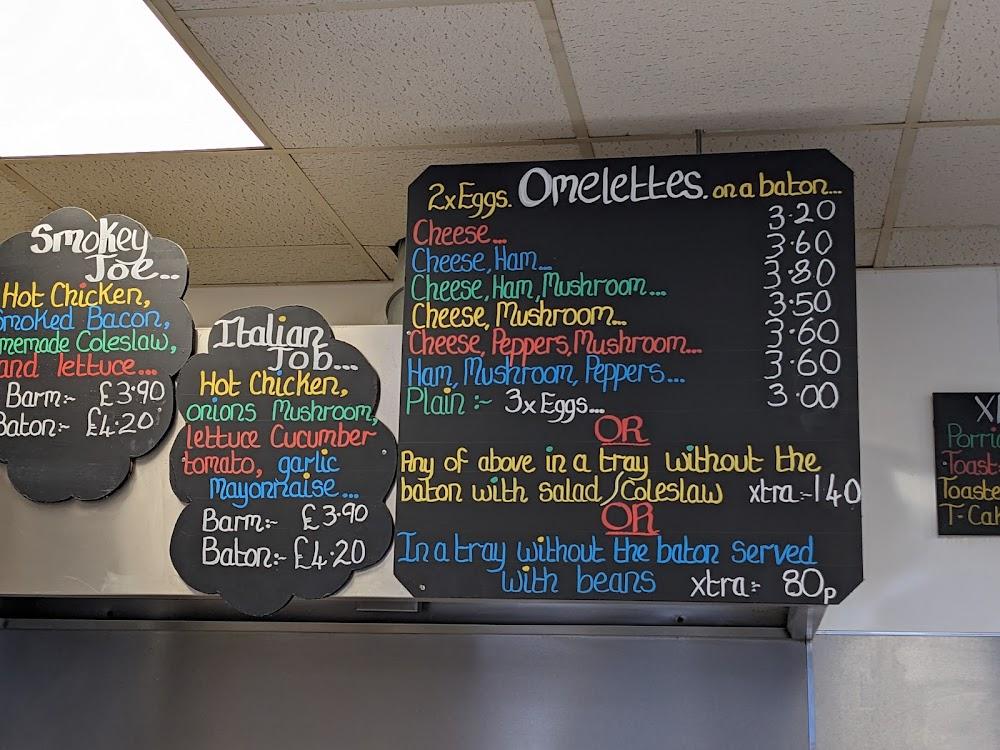 Smokey
Joe..
Hot Chicken,
Smoked Bacon,
Coleslaw,
and lettuce...
Barm:- £3.90
Baton:- £4.20
Italian
Job...
Hot Chicken,
onions Mushroom,
lettuce Cucumber
tomato, garlic
Mayonnaise...
Barm:- £3.90
Baton:- £4.20
2x Eggs. Omelettes. on a baton...
Cheese... 3.20
Cheese, Ham... 3.60
Cheese, Ham, Mushroom... 3.80
Cheese, Mushroom... 3.50
Cheese, Peppers, Mushroom... 3.60
Ham, Mushroom, Peppers... 3.60
Plain :- 3x Eggs... 3.00
OR
Any of above in a tray without the
baton with salad/Coleslaw xtra:-140
OR
In a tray without the baton served
with beans xtra:- 80p
Toast
Toaste
T-Cak